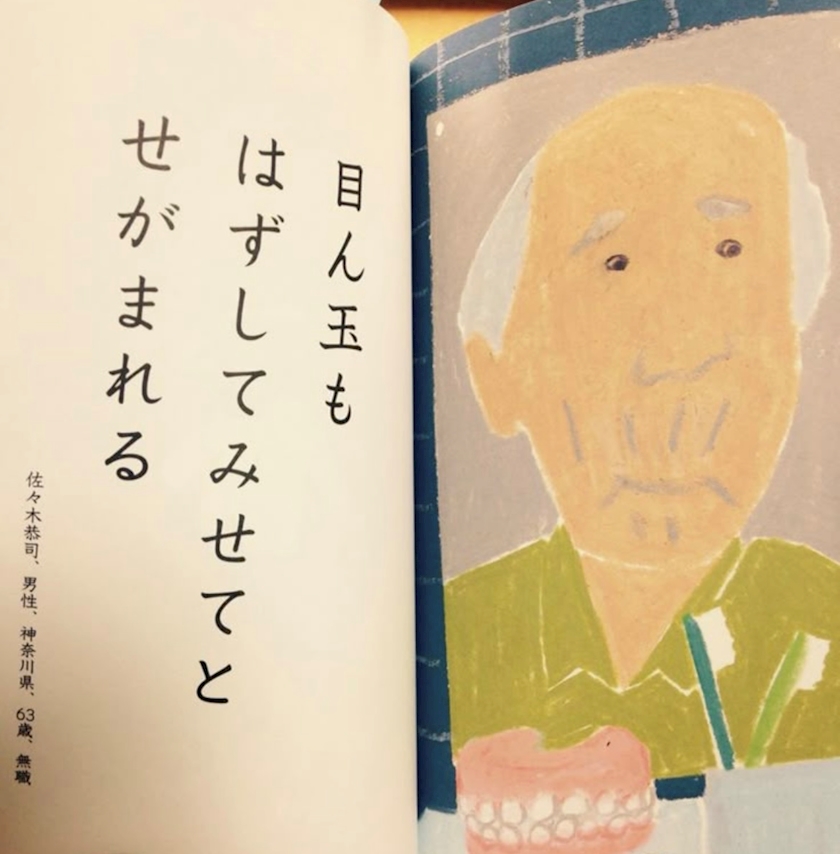 目ん玉も
はずしてみせてと
せがまれる
佐々木恭司、男性、神奈川県、63歳、無職